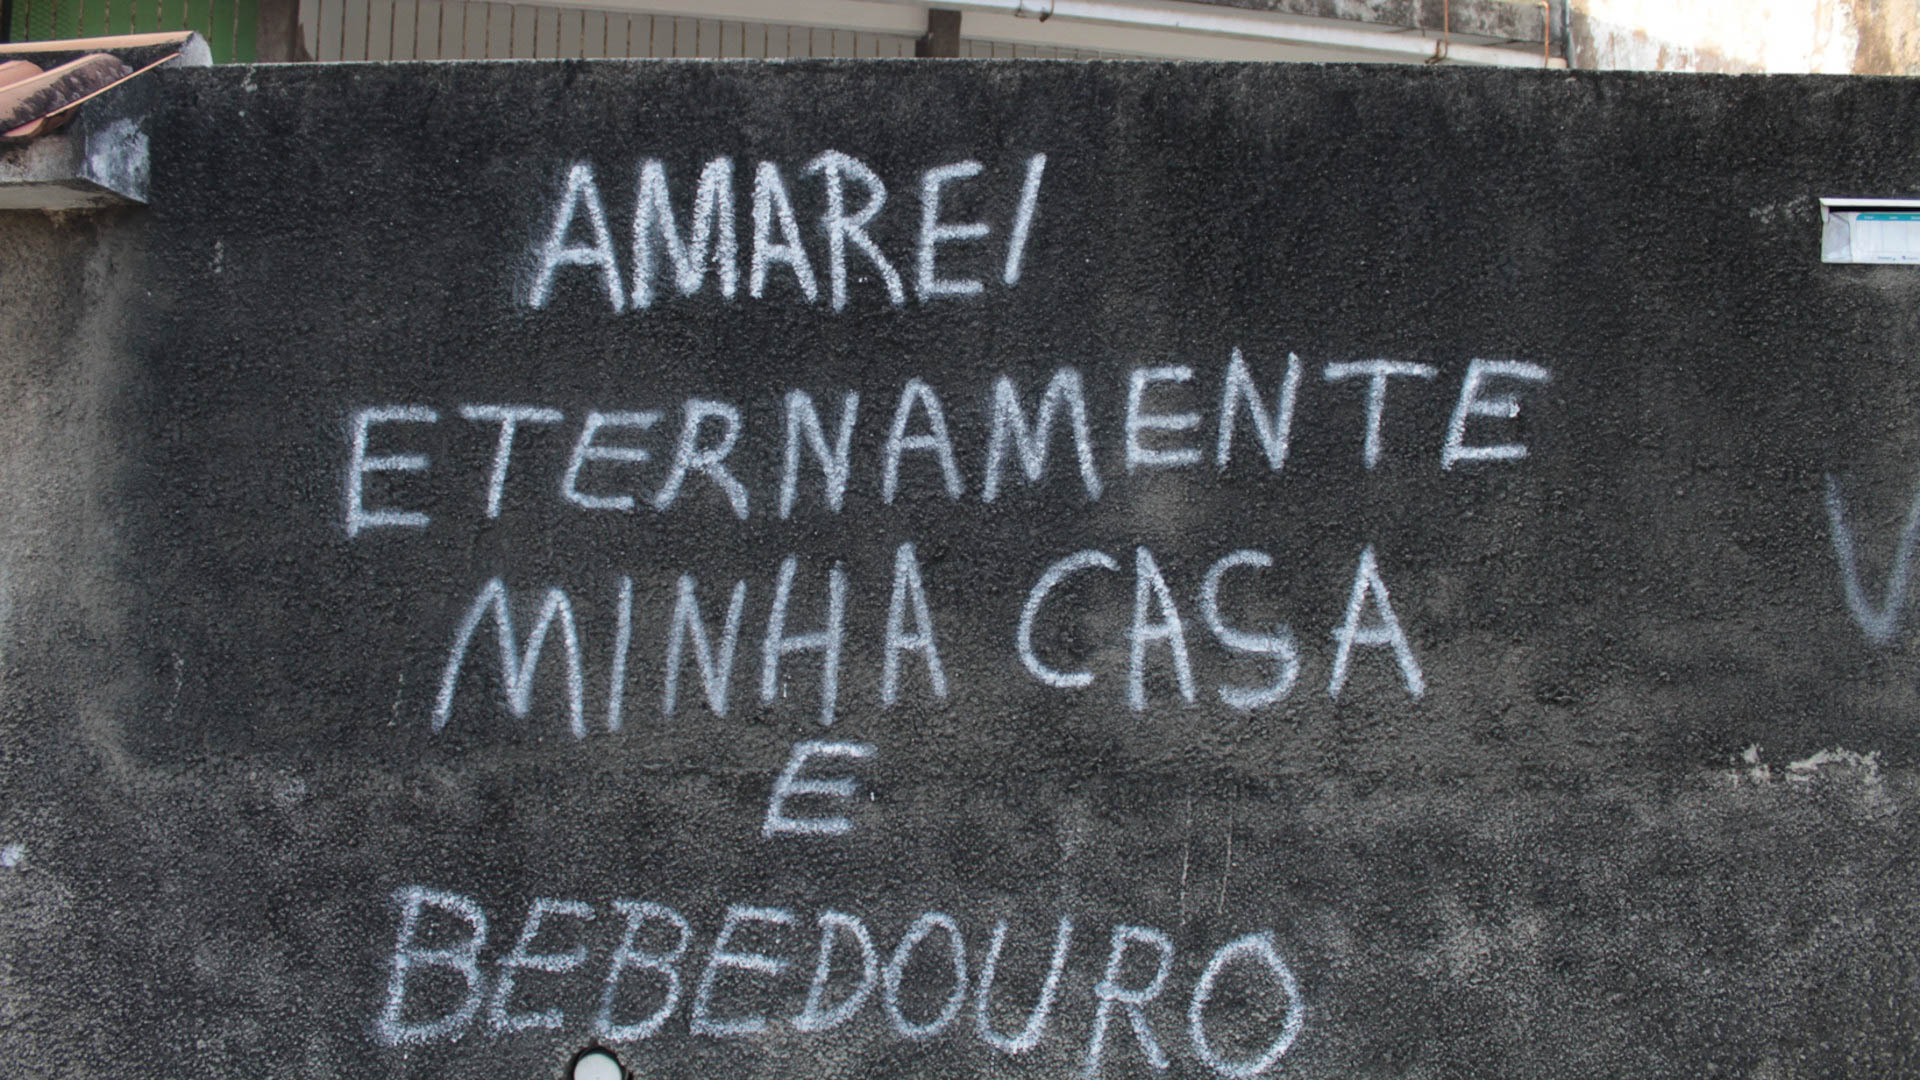 AMAREI
ETERNAMENTE
MINHA CASA
E
BEBEDOURO
V